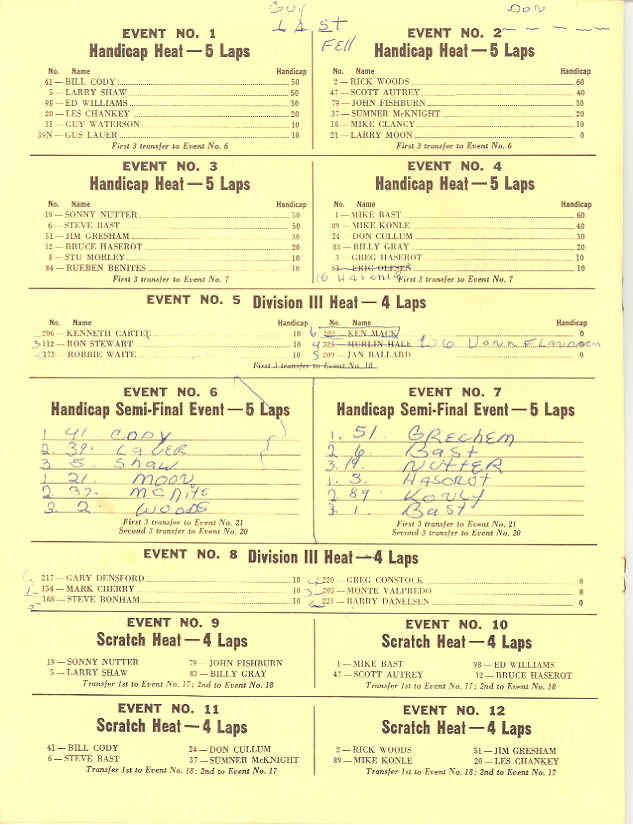 GUY
DON
LAST
FELL
EVENT NO. 1
Handicap Heat — 5 Laps
No. Name Handicap
41 — BILL CODY 50
5 — LARRY SHAW 50
98 — ED WILLIAMS 30
20 — LES CHANKEY 20
31 — GUY WATERSON 10
39N — GUS LAUER 10
First 3 transfer to Event No. 6
EVENT NO. 2
Handicap Heat — 5 Laps
No. Name Handicap
2 — RICK WOODS 60
47 — SCOTT AUTREY 40
79 — JOHN FISHBURN 30
37 — SUMNER McKNIGHT 20
18 — MIKE CLANCY 10
21 — LARRY MOON 0
First 3 transfer to Event No. 6
EVENT NO. 3
Handicap Heat — 5 Laps
No. Name Handicap
19 — SONNY NUTTER 50
6 — STEVE BAST 50
51 — JIM GRESHAM 30
12 — BRUCE HASEROT 20
8 — STU MORLEY 10
84 — RUEBEN BENITES 10
First 3 transfer to Event No. 7
EVENT NO. 4
Handicap Heat — 5 Laps
No. Name Handicap
1 — MIKE BAST 60
89 — MIKE KONLE 40
24 DON CULLUM 30
83 — BILLY GRAY 20
3 GREG HASEROT 10
64 — ERIC OLESEN 10
16
First 3 transfer to Event No. 7
EVENT NO. 5 Division III Heat — 4 Laps
No. Name Handicap
206 — KENNETH CARTEE 10
3 112 — RON STEWART 10
173 — ROBBIE WAITE 10
No. Name Handicap
6 202 — KEN MACK 0
4 325 — MURLIN HALE 106 VONN FLANDERS
5 209 — JAN BALLARD 0
First 3 transfer to Event No. 18
EVENT NO. 6
Handicap Semi-Final Event — 5 Laps
1 41 CODY
2. 39. LAUER
3 5. Shaw
1. 21. MOON
2 37. McNite
3. 2. WOODS
First 3 transfer to Event No. 21
Second 3 transfer to Event No. 20
EVENT NO. 7
Handicap Semi-Final Event — 5 Laps
1. 51. GRECHEM
2 6. Bast
3. 19. NUTTER
1. 3. HASOROT
2 89. KONLY
3. 1. Bast
First 3 transfer to Event No. 21
Second 3 transfer to Event No. 20
EVENT NO. 8 Division III Heat — 4 Laps
217 — GARY DENSFORD 10
1 154 — MARK CHERRY 10
168 — STEVE BONHAM 10
4 220 — GREG CONSTOCK 0
205 — MONTE VALPREDO 0
221 — BARRY DANELSEN 0
EVENT NO. 9
Scratch Heat — 4 Laps
19 — SONNY NUTTER 79 — JOHN FISHBURN
5 — LARRY SHAW 83 — BILLY GRAY
Transfer 1st to Event No. 17; 2nd to Event No. 18
EVENT NO. 10
Scratch Heat — 4 Laps
1 — MIKE BAST 98 — ED WILLIAMS
47 — SCOTT AUTREY 12 — BRUCE HASEROT
Transfer 1st to Event No. 17; 2nd to Event No. 18
EVENT NO. 11
Scratch Heat — 4 Laps
41 — BILL CODY 24 — DON CULLUM
6 — STEVE BAST 37 — SUMNER McKNIGHT
Transfer 1st to Event No. 18; 2nd to Event No. 17
EVENT NO. 12
Scratch Heat — 4 Laps
2 — RICK WOODS 51 — JIM GRESHAM
89 — MIKE KONLE 20 — LES CHANKEY
Transfer 1st to Event No. 18; 2nd to Event No. 17